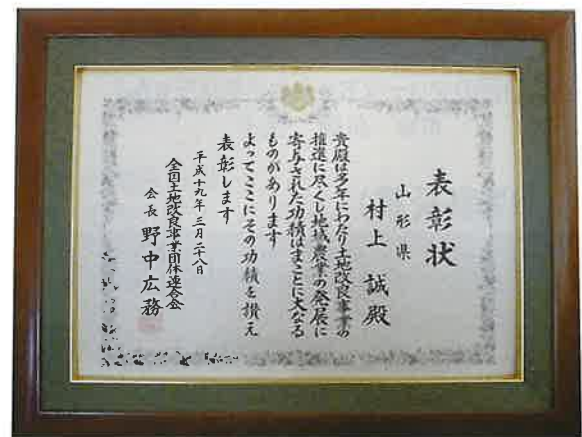 表彰状
山形県
村上誠殿
貴殿は多年にわたり土地改良事業の
推進に尽くし地域農業の発展に
寄与された功績はまことに大なる
ものがあります
よってここにその功績を讃え
表彰します
平成十九年三月二十八日
全国土地改良事業団体連合会
会長 野中広務